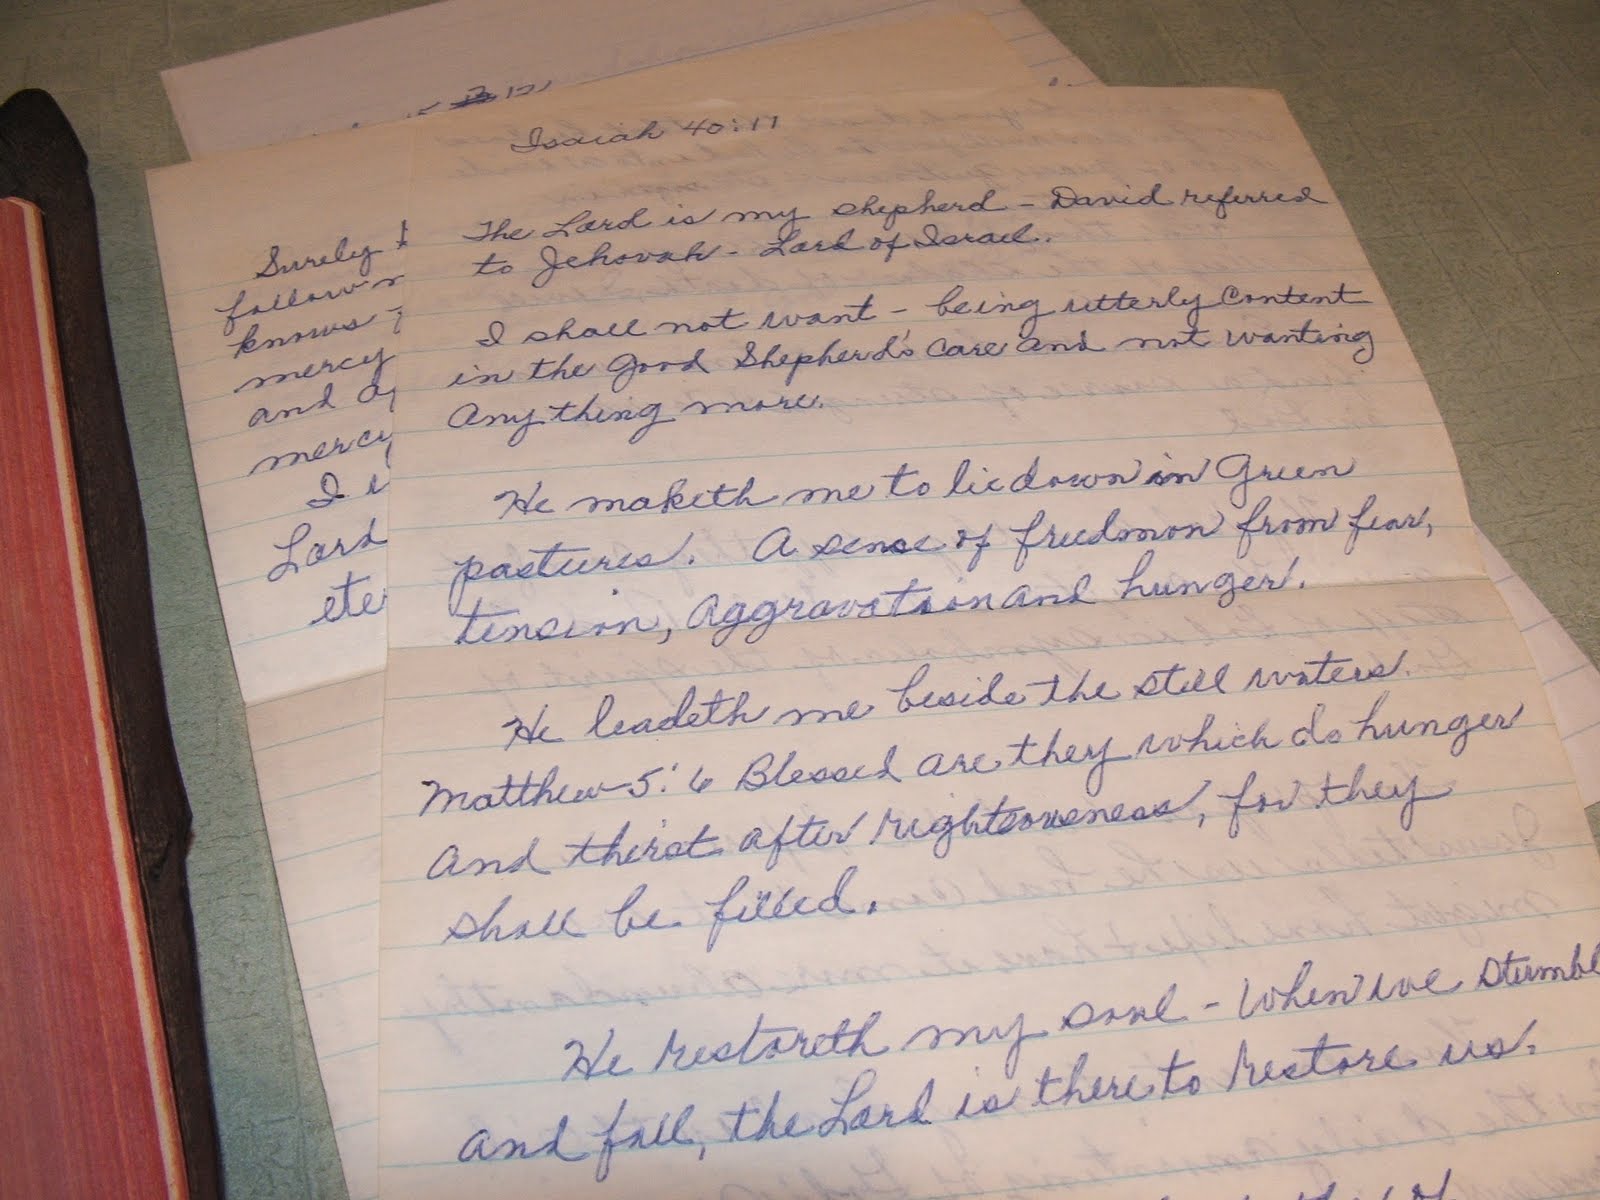 Isaiah 40:11
The Lord is my shepherd - David referred
to Jehovah - Lord of Israel.
I shall not want - being utterly content
in the Good Shepherd's care and not wanting
anything more.
He maketh me to lie down in Green
pastures. A sense of freedmon from fear,
tension, aggravation and hunger.
He leadeth me beside the still waters.
Matthew 5:6 Blessed are they which do hunger
and thirst after righteousness, for they
shall be filled.
He restoreth my soul - When we stumbl
and fall, the Lord is there to restore us.
Surely
follow
knows
mercy
and
mercy
I
Lord
ete